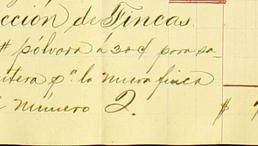 cción de Fincas.
# pólvora á 20¢ para sa
ntera pª la nueva finca
número 2. $